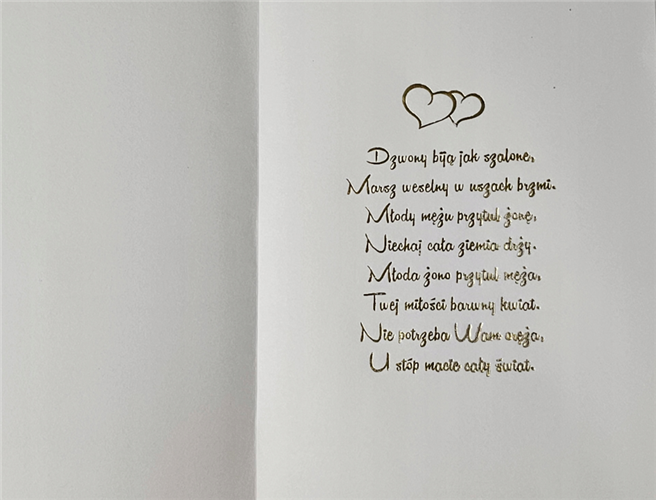 Dzwony biją jak szalone,
Marsz weselny w uszach brzmi.
Młody mężu przytul żonę,
Niechaj cała ziemia drży.
Młoda żono przytul męża,
Twej miłości barwny kwiat.
Nie potrzeba Wam oręża,
U stóp macie cały świat.